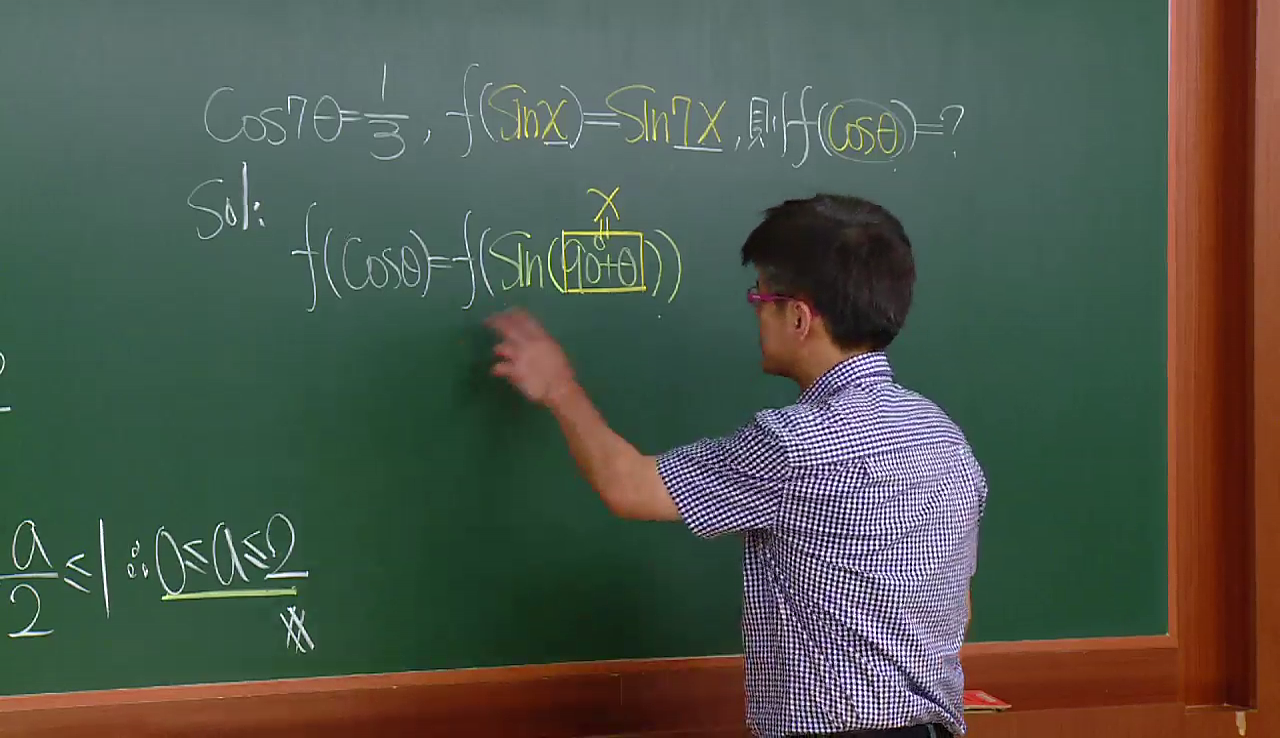 Cos7θ=1/3, f(Sinx)=Sin7x, 則f(Cosθ)=?
Sol:
x
||
f(Cosθ)=f(Sin(90+θ))
a/2≤1 ∴0≤a≤2